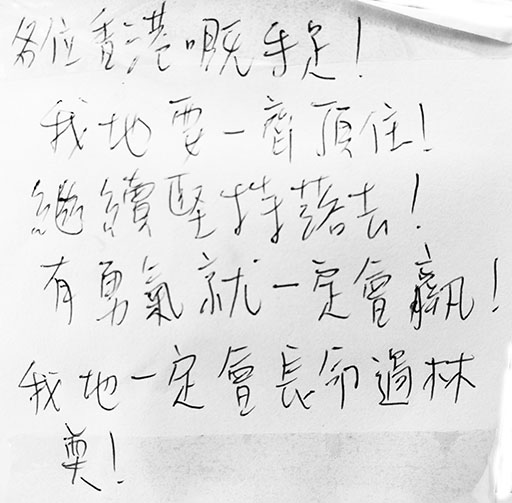 各位香港嘅手足！
我地要一齊頂住！
繼續堅持落去！
有勇氣就一定會贏！
我地一定會長命過林
奠！